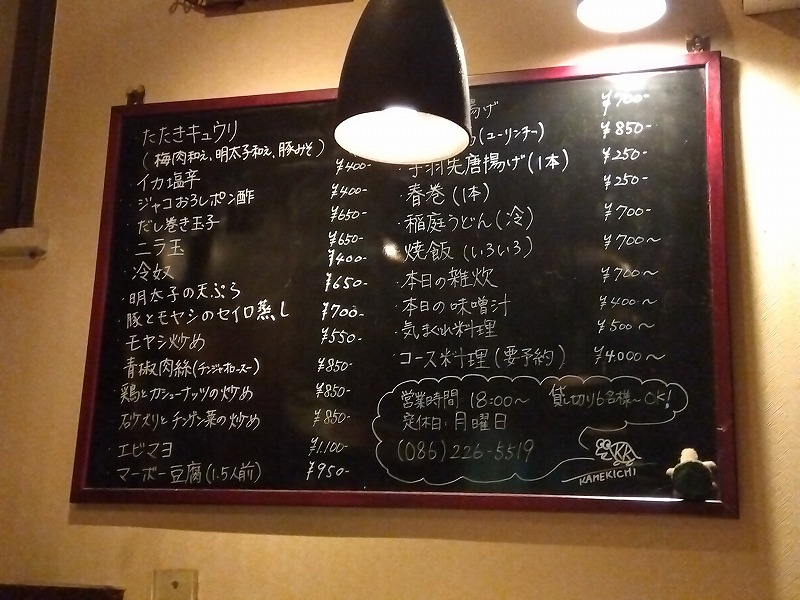 たたきキュウリ
(梅肉和え、明太子和え、豚みそ) ¥400-
・イカ塩辛 ¥400-
・ジャコおろしポン酢 ¥650-
・だし巻き玉子 ¥650-
・ニラ玉 ¥400-
・冷奴 ¥650-
・明太子の天ぷら ¥700-
・豚とモヤシのセイロ蒸し ¥550-
・モヤシ炒め
青椒肉絲(チンジャオロースー) ¥850-
・鶏とカシューナッツの炒め ¥850-
砂ズリとチンゲン菜の炒め ¥850-
・エビマヨ ¥1.100-
・マーボー豆腐(1.5人前) ¥950-
揚げ ¥700-
(ユーリンチー) ¥850-
・手羽先唐揚げ(1本) ¥250-
・春巻(1本) ¥250-
・稲庭うどん(冷) ¥700-
・焼飯(いろいろ) ¥700〜
・本日の雑炊 ¥700〜
・本日の味噌汁 ¥400〜
・気まぐれ料理 ¥500〜
・コース料理(要予約) ¥4.000〜
営業時間 18:00〜 貸し切り6名様〜OK!
定休日:月曜日
(086)226-5519
KK
KAMEKICHI